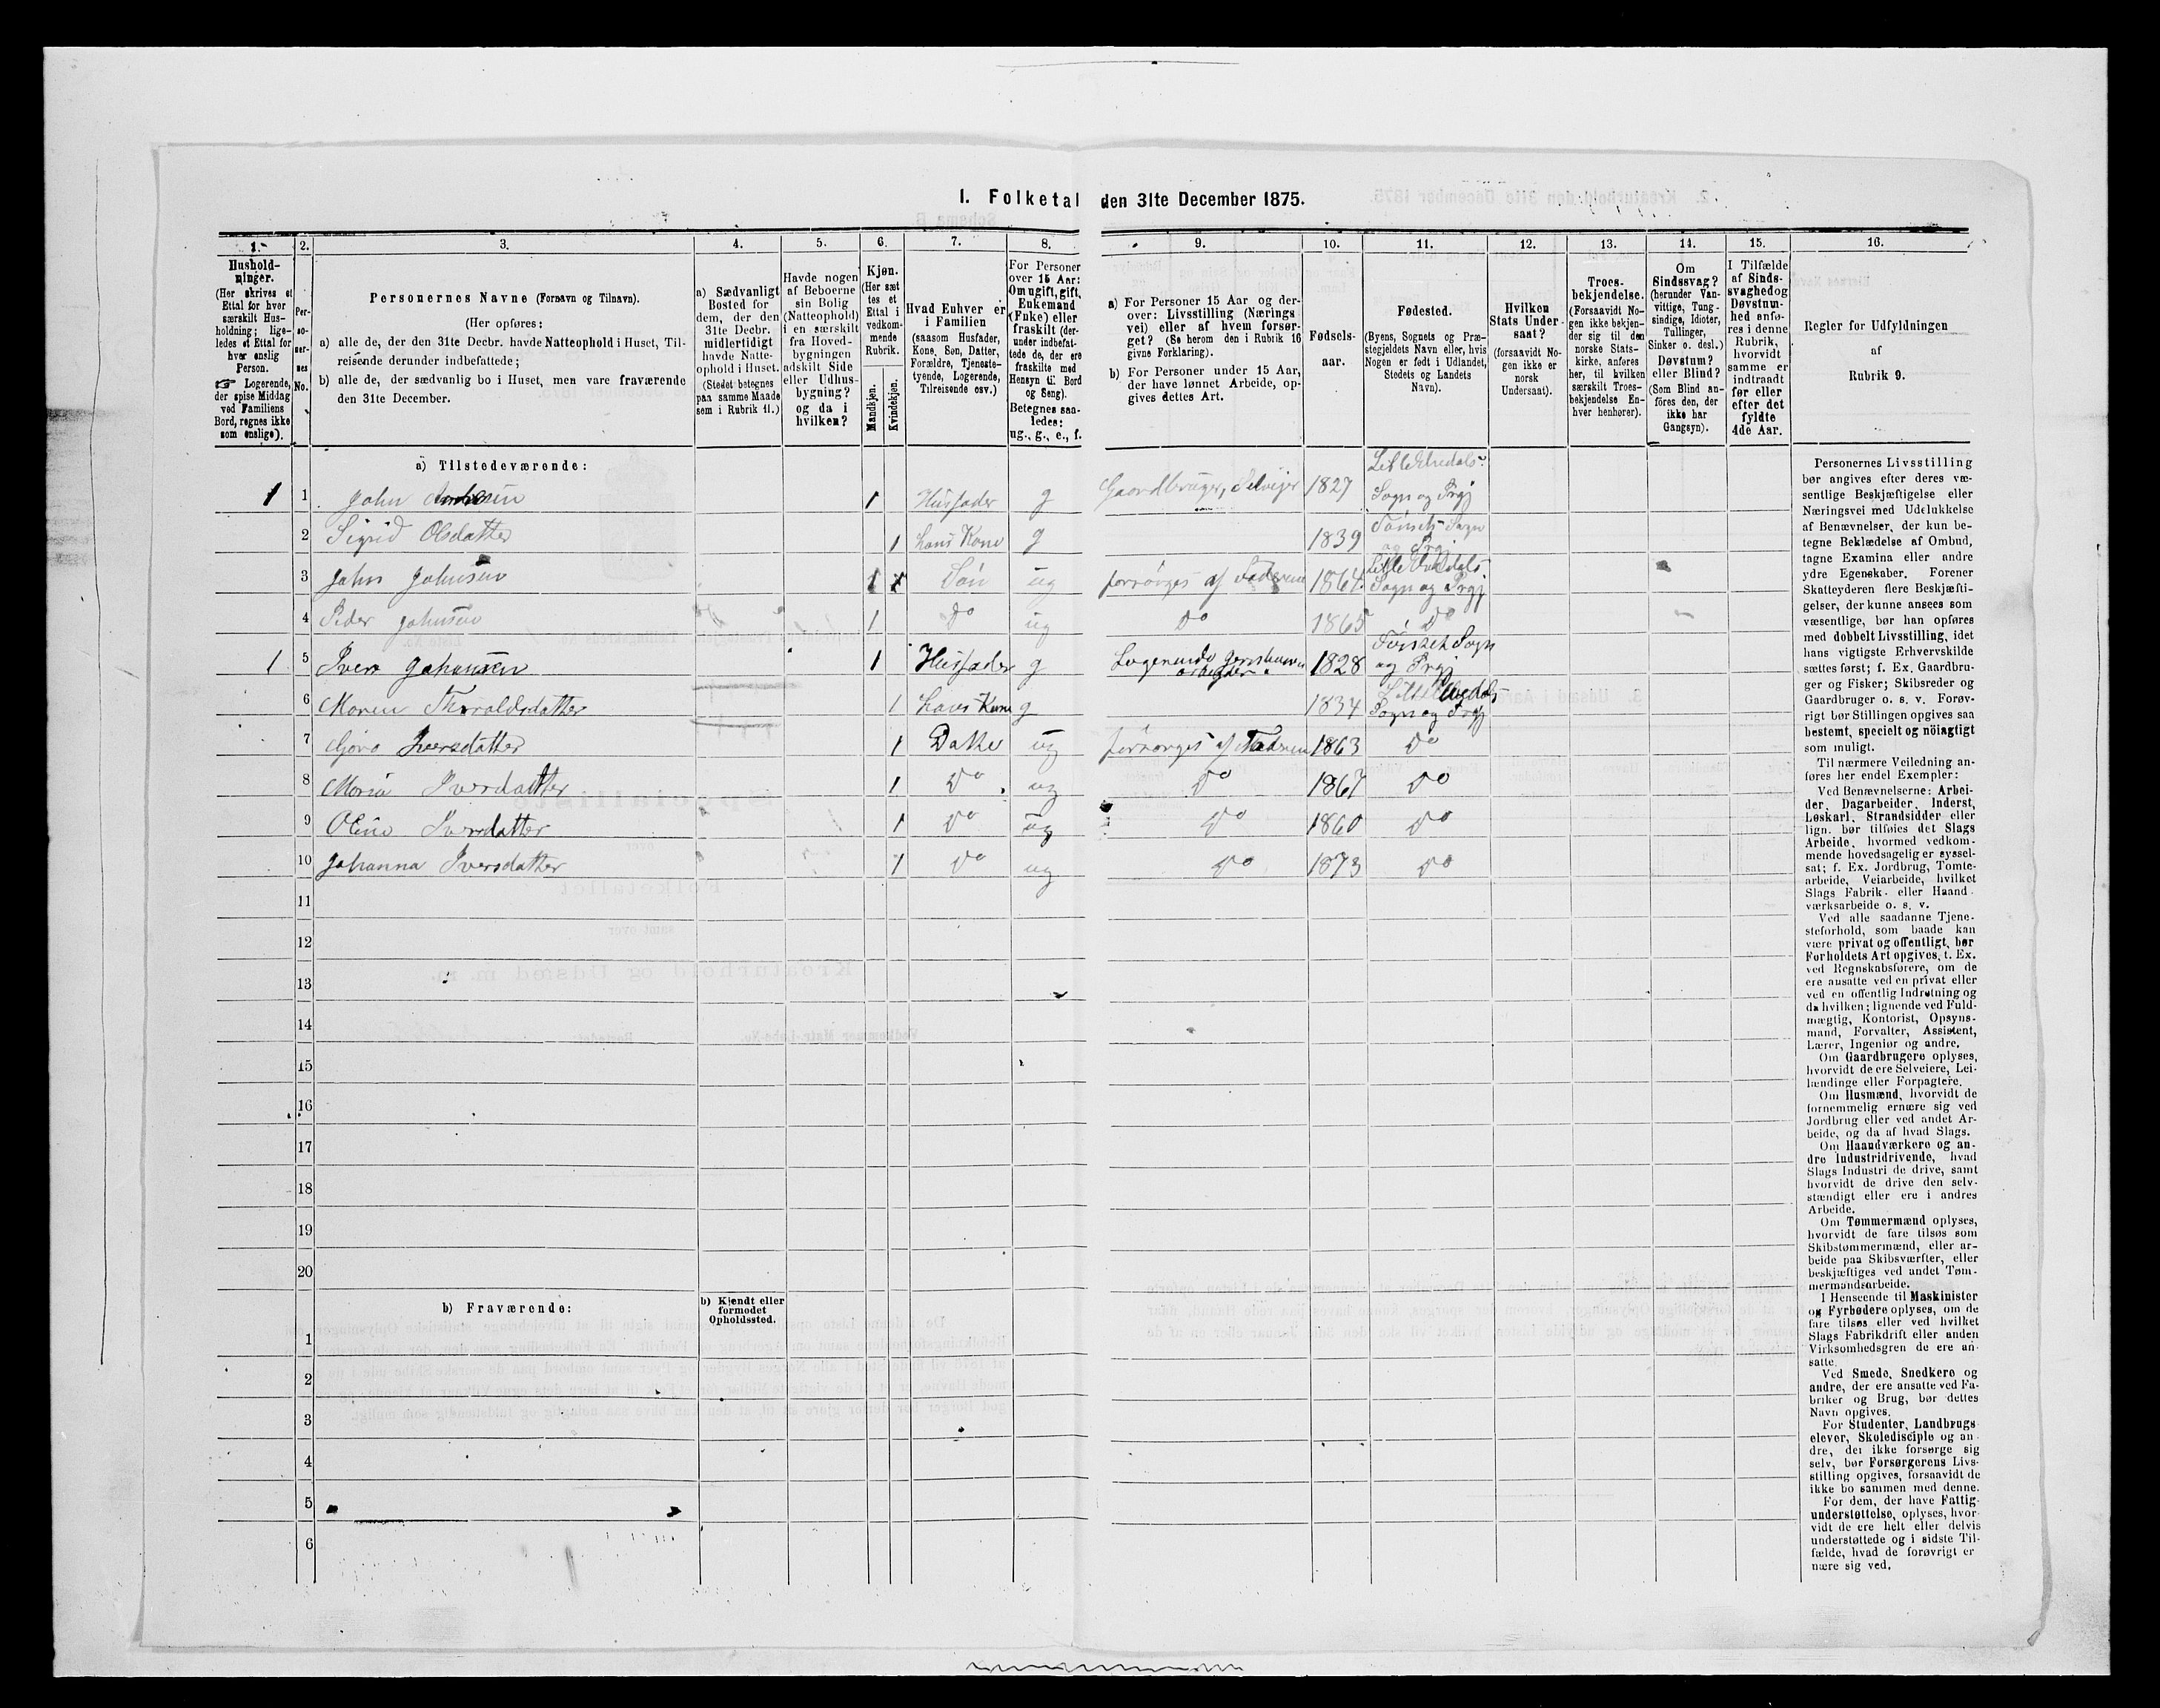 I. Folketal den 31te December 1875.
1. 2. 3. 4. 5. 6. 7. 8. 9. 10. 11. 12. 13. 14. 15. 16.
Hushold-
ninger.
(Her skrives et
Ettal for hver
særskilt Hus-
holdning; lige-
ledes et Ettal for
hver enslig
Person.
☞ Logerende,
der spise Middag
ved Familiens
Bord, regnes ikke
som enslige).
Per-
so-
ner-
nes
No.
Personernes Navne (Fornavn og Tilnavn).
(Her opføres:
a) alle de, der den 31te Decbr. havde Natteophold i Huset, Til-
reisende derunder indbefattede;
b) alle de, der sædvanlig bo i Huset, men vare fraværende
den 31te December.
a) Sædvanligt
Bosted for
dem, der den
31te Decbr.
midlertidigt
havde Natte-
ophold i Huset.
(Stedet betegnes
paa samme Maade
som i Rubrik 11.)
Havde nogen
af Beboerne
sin Bolig
(Natteophold)
i en særskilt
fra Hoved-
bygningen
adskilt Side
eller Udhus-
bygning?
og da i
hvilken?
Kjøn.
(Her sæt
tes et
Ettal i
vedkom-
mende
Rubrik.
Mandkjøn.
Kvindekjøn.
Hvad Enhver er
i Familien
(saasom Husfader,
Kone, Søn, Datter,
Forældre, Tjeneste-
tyende, Logerende,
Tilreisende osv.)
For Personer
over 15 Aar:
Om ugift, gift,
Enkemand
(Enke) eller
fraskilt (der-
under indbefat-
tede de, der ere
fraskilte med
Hensyn til Bord
og Seng).
Betegnes saa-
ledes:
ug., g., e., f.
a) For Personer 15 Aar og der-
over: Livsstilling (Nærings
vei) eller af hvem forsør-
get? (Se herom den i Rubrik 16
givne Forklaring).
b) For Personer under 15 Aar,
der have lønnet Arbeide, op-
gives dettes Art.
Fødsels-
aar.
Fødested.
(Byens, Sognets og Præ-
stegjeldets Navn eller, hvis
Nogen er født i Udlandet,
Stedets og Landets
Navn).
Hvilken
Stats Under-
saat?
(forsaavidt No-
gen ikke er
norsk
Undersaat).
Troes-
bekjendelse.
(Forsaavidt No-
gen ikke bekjen-
der sig til den
norske Stats-
kirke, anføres
her, til hvilken
særskilt Troes-
bekjendelse En-
hver henhører).
Om
Sindssvag?
(herunder Van-
vittige, Tung-
sindige, Idioter,
Tullinger,
Sinker o. desl.)
Døvstum?
eller Blind?
(Som Blind an-
føres den, der
ikke har
Gangsyn).
I Tilfælde
af Sinds-
svaghed og
Døvstum-
hed anfø-
res i denne
Rubrik,
hvorvidt
samme er
indtraadt
før eller
efter det
fyldte
4de Aar.
Regler for Udfyldningen
af
Rubrik 9.
a) Tilstedeværende:
1 1 John 1 Husfader g Gaardbruger, Selveier 1827 Sogn og Prgj
2 Sigrid Olsdatter 1 hans Kone g 1839 Tönsets Sogn og Prgj
3 John Johnsen 1 Sön ug forsörges af Faderen 1864 Lille Elvedals Sogn og Prgj
4 Peder Johnsen 1 Do ug Do 1865 Do
1 5 Iver Johansen 1 Husfader g Logerende 1828 Tönset Sogn og Prgj
6 Maren Thoraldsdatter 1 hans Kone g 1834 Lille Elvedals Sogn og Prgj
7 Iversdatter 1 Datter ug forsörges af Faderen 1863 Do
8 Maria Iversdatter 1 Do ug Do 1867 Do
9 Oline Iversdatter 1 Do ug Do 1860 Do
10 Johanna Iversdatter 1 Do ug Do 1873 Do
11
12
13
14
15
16
17
18
19
20
b) Fraværende:
b) Kjendt eller
formodet
Opholdssted.
1
2
3
4
5
6
Personernes Livsstilling
bør angives efter deres væ-
sentlige Beskjæftigelse eller
Næringsvei med Udelukkelse
af Benævnelser, der kun be-
tegne Beklædelse af Ombud,
tagne Examina eller andre
ydre Egenskaber. Forener
Skatteyderen flere Beskjæfti-
gelser, der kunne ansees som
væsentlige, bør han opføres
med dobbelt Livsstilling, idet
hans vigtigste Erhvervskilde
sættes først; f. Ex. Gaardbru-
ger og Fisker; Skibsreder og
Gaardbruger o. s. v. Forøv-
rigt bør Stillingen opgives saa
bestemt, specielt og nöiagtigt
som muligt.
Til nærmere Veiledning an-
føres her endel Exempler:
Ved Benævnelserne: Arbei-
der, Dagarbeider, Inderst,
Løskarl, Strandsidder eller
lign. bør tilføies det Slags
Arbeide, hvormed vedkom-
mende hovedsagelig er syssel-
sat; f. Ex. Jordbrug, Tomte-
arbeide, Veiarbeide, hvilket
Slags Fabrik- eller Haand-
værksarbeide o. s. v.
Ved alle saadanne Tjene-
steforhold, som baade kan
være privat og offentligt, bør
Forholdets Art opgives, f. Ex.
ved Regnskabsførere, om de
ere ansatte ved en privat eller
ved en offentlig Indretning og
da hvilken; lignende ved Fuld-
mægtig, Kontorist, Opsyns-
mand, Forvalter, Assistent,
Lærer, Ingeniør og andre.
Om Gaardbrugere oplyses,
hvorvidt de ere Selveiere, Lei-
lændinge eller Forpagtere.
Om Husmænd, hvorvidt de
fornemmelig ernære sig ved
Jordbrug eller ved andet Ar-
beide, og da af hvad Slags.
Om Haandværkere og an-
dre Industridrivende, hvad
Slags Industri de drive, samt
hvorvidt de drive den selv-
stændigt eller ere i andres
Arbeide.
Om Tømmermænd oplyses,
hvorvidt de fare tilsøs som
Skibstømmermænd, eller ar-
beide paa Skibsværfter, eller
beskjæftiges ved andet Tøm-
mermandsarbeide.
I Henseende til Maskinister
og Fyrbødere oplyses, om de
fare tilsøs eller ved hvilket
Slags Fabrikdrift eller anden
Virksomhedsgren de ere an-
satte.
Ved Smede, Snedkere og
andre, der ere ansatte ved Fa-
briker og Brug, bør dettes
Navn opgives.
For Studenter, Landbrugs-
elever, Skoledisciple og an-
dre, der ikke forsørge sig
selv, bør Forsørgerens Livs-
stilling opgives, forsaavidt de
ikke bo sammen med denne.
For dem, der have Fattig-
understøttelse, oplyses, hvor-
vidt de ere helt eller delvis
understøttede og i sidste Til-
fælde, hvad de forøvrigt er-
nære sig ved.